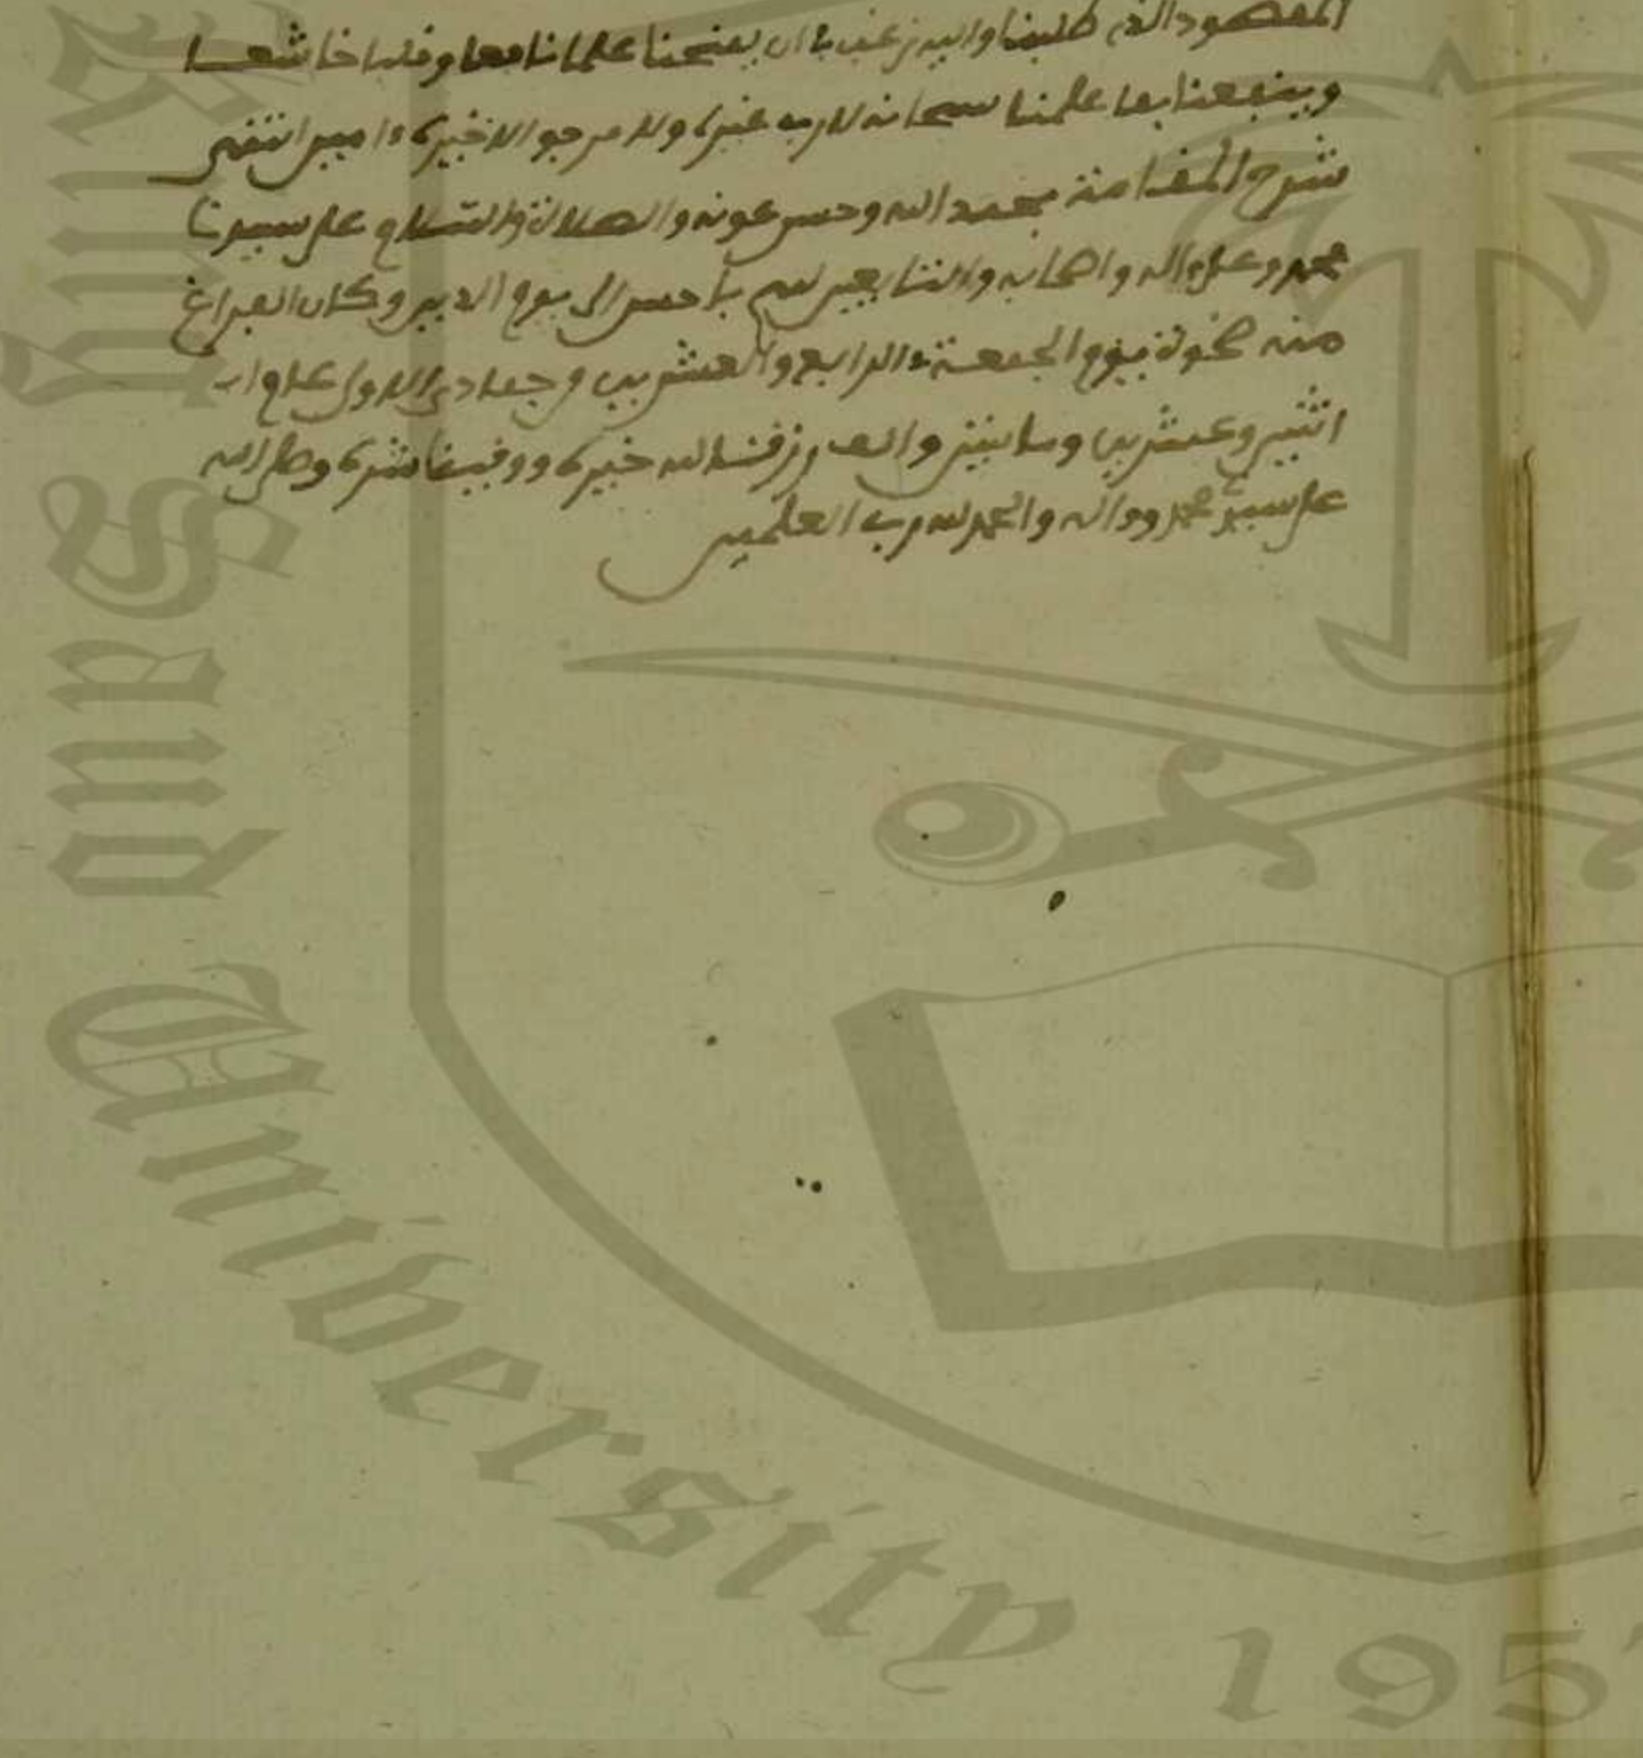 المقصود الذي طلبنا واليه نرغب في ان يمنحنا علما نافعا وقلبا خاشعا
وينفعنا بما علمنا سبحانه لا رب غيره ولا مرجو الا خيره ءامين انتهى
شرح المقدمة بحمد الله وحسن عونه والصلاة والسلام على سيدنا
محمد وعلى ءاله واصحابه والتابعين لهم باحسن الى يوم الدين وكان الفراغ
منه ضحوة يوم الجمعة الرابع والعشرين من جمادى الاولى عام
اثنين وعشرين ومايتين والف رزقنا الله خيره ووقينا شره وصلى الله
على سيدنا محمد وءاله والحمد لله رب العلمين
Saud University 195